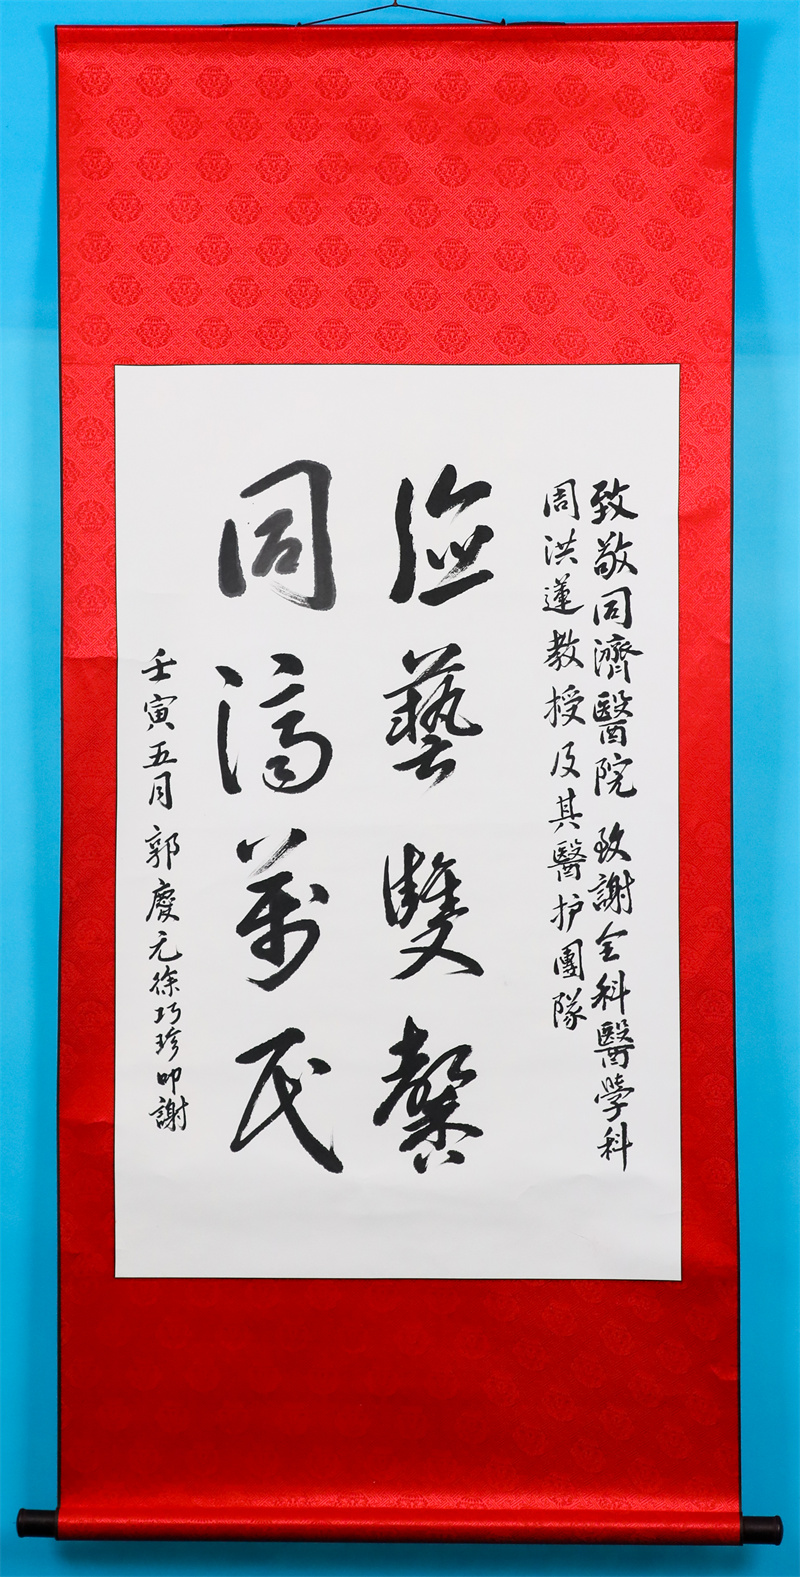 致敬同濟醫院 致謝全科醫學科
周洪蓮教授及其醫护團隊
德藝雙馨
同濟萬民
壬寅五月 郭慶元徐巧珍叩謝